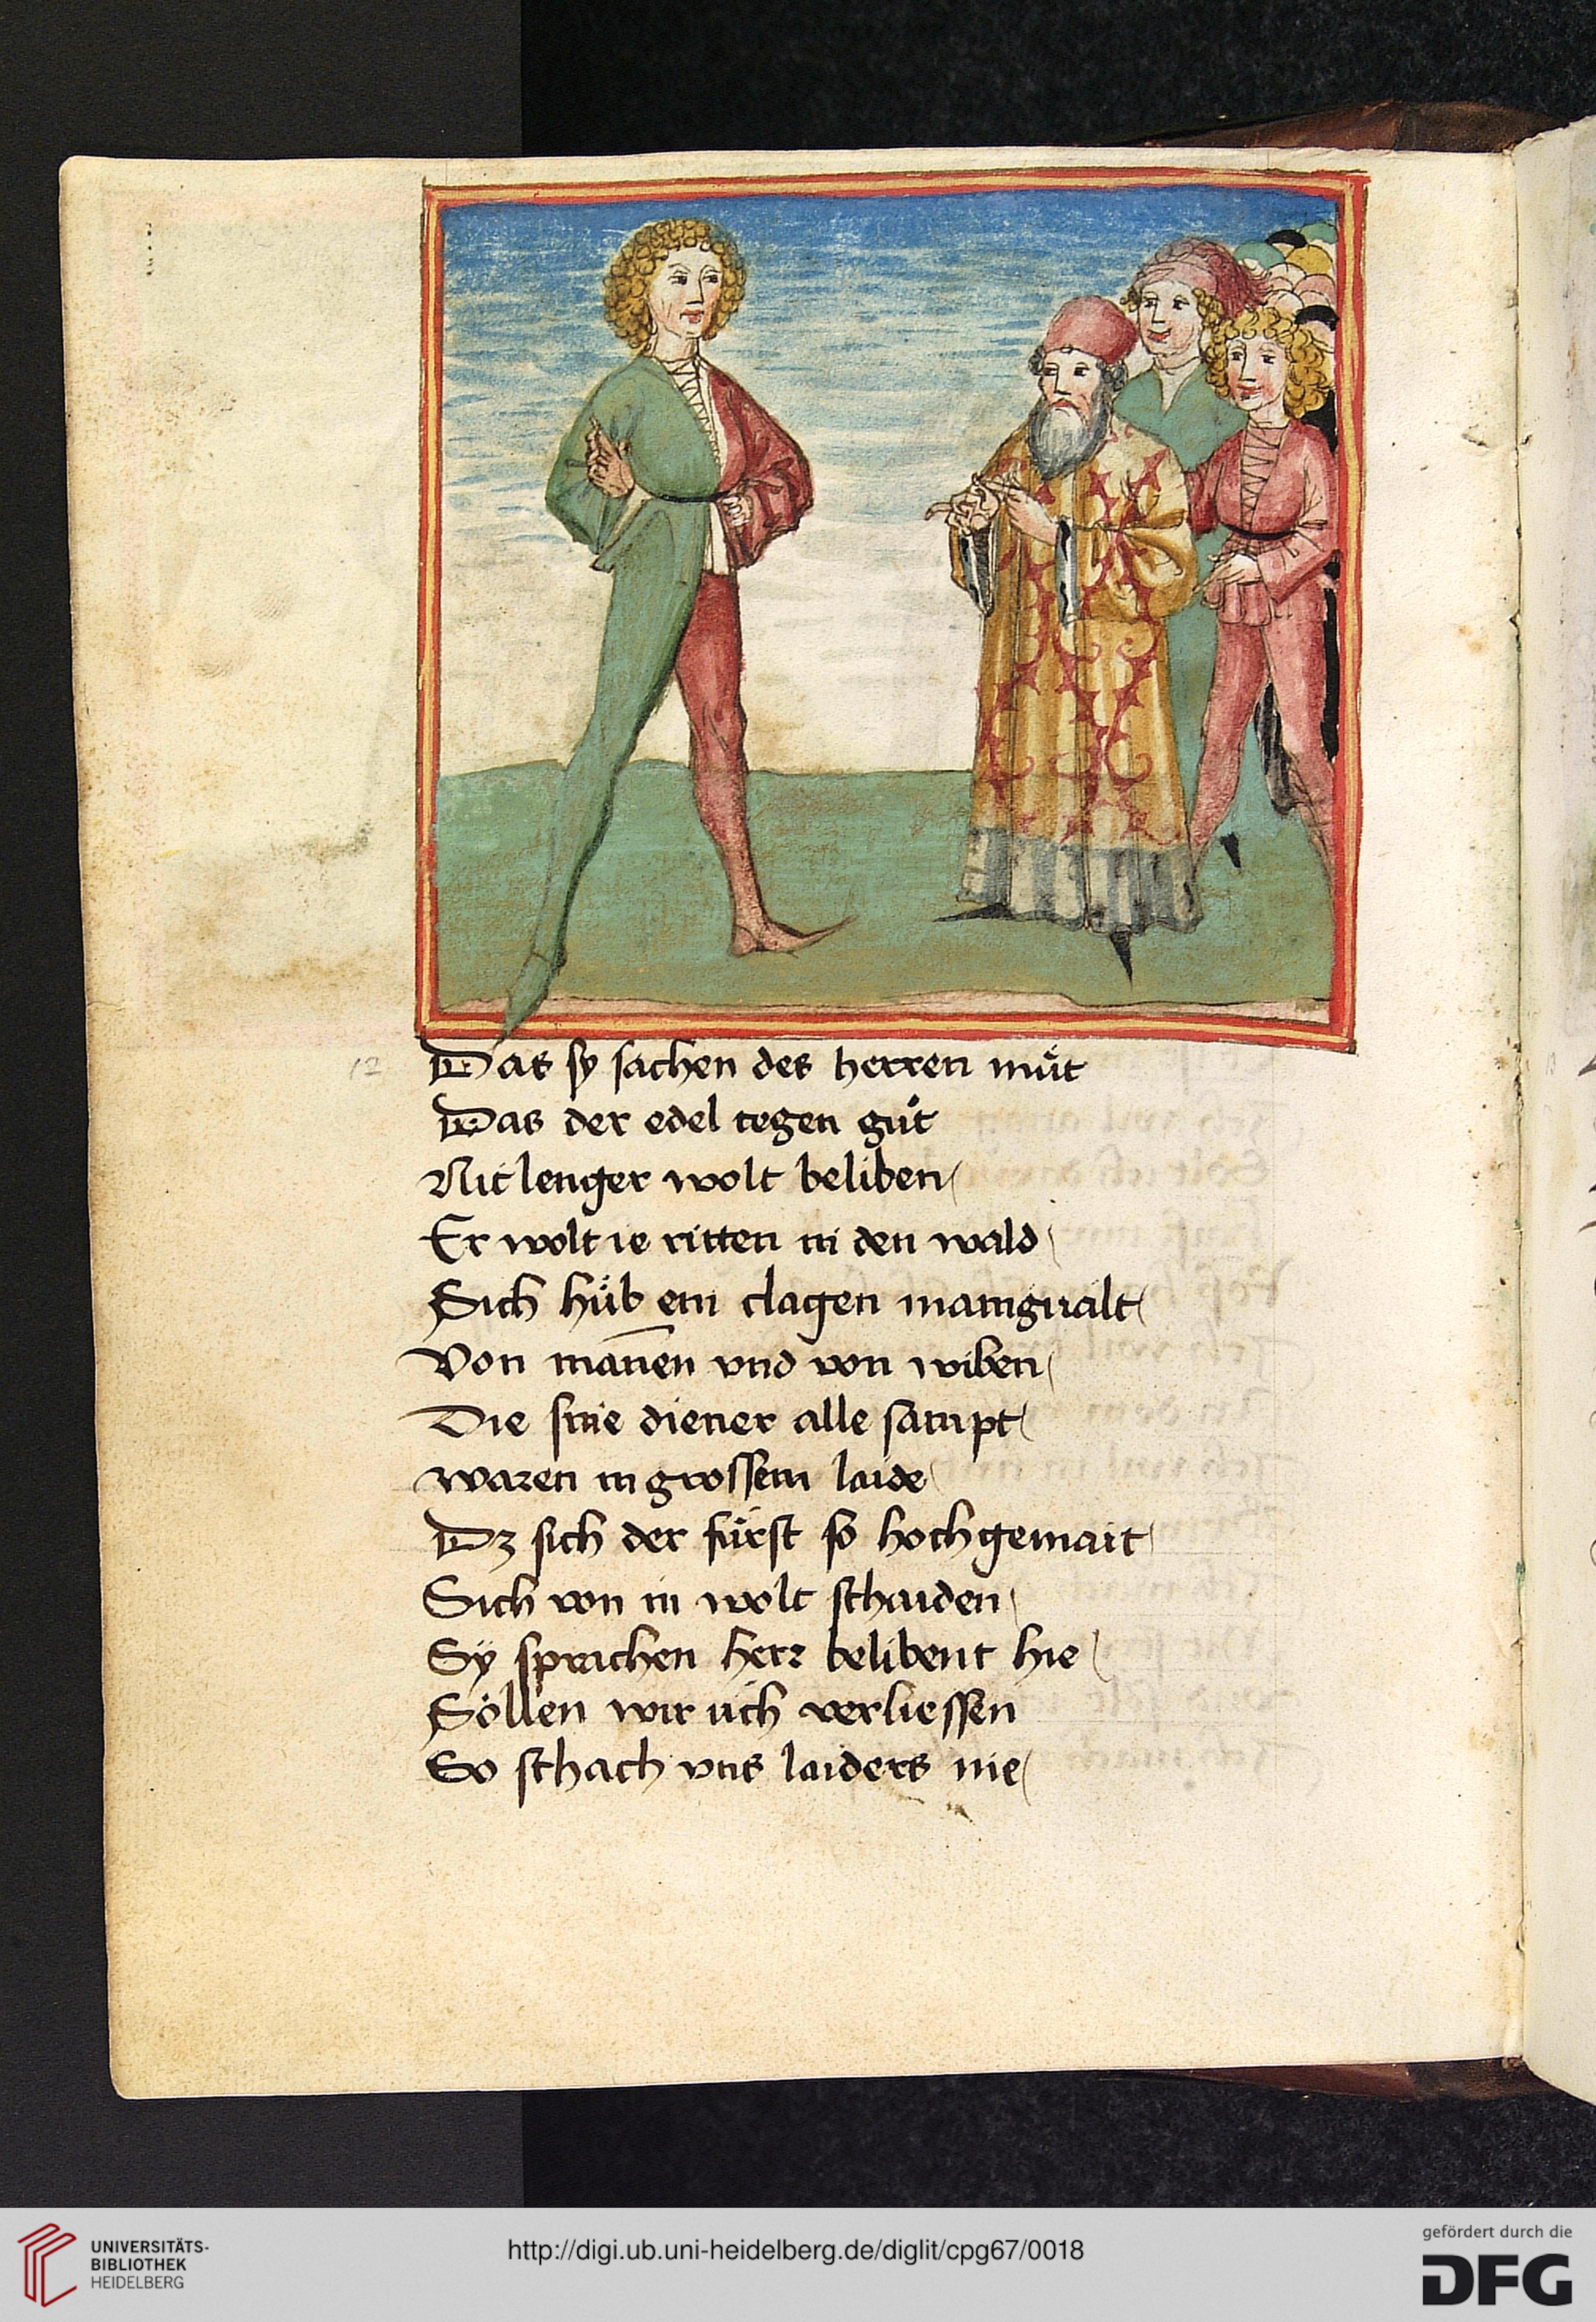 12
Das sy sachen des herren můt
Das der edel tegen gůt
Nit lenger wolt beliben
Er wolt ie ritten in den wald
Sich hůb ein clagen manigualt
Von man̄en vnd von wiben
Die sine diener alle sampt
waren in grossem laide
Dz sich der fürst so hochgemait
Sich von in wolt schaiden
Sÿ sprachen herr belibent hie
Söllen wir üch verliessen
So schach vns laiders nie
UNIVERSITÄTS-
BIBLIOTHEK
HEIDELBERG
http://digi.ub.uni-heidelberg.de/diglit/cpg67/0018
gefördert durch die
DFG